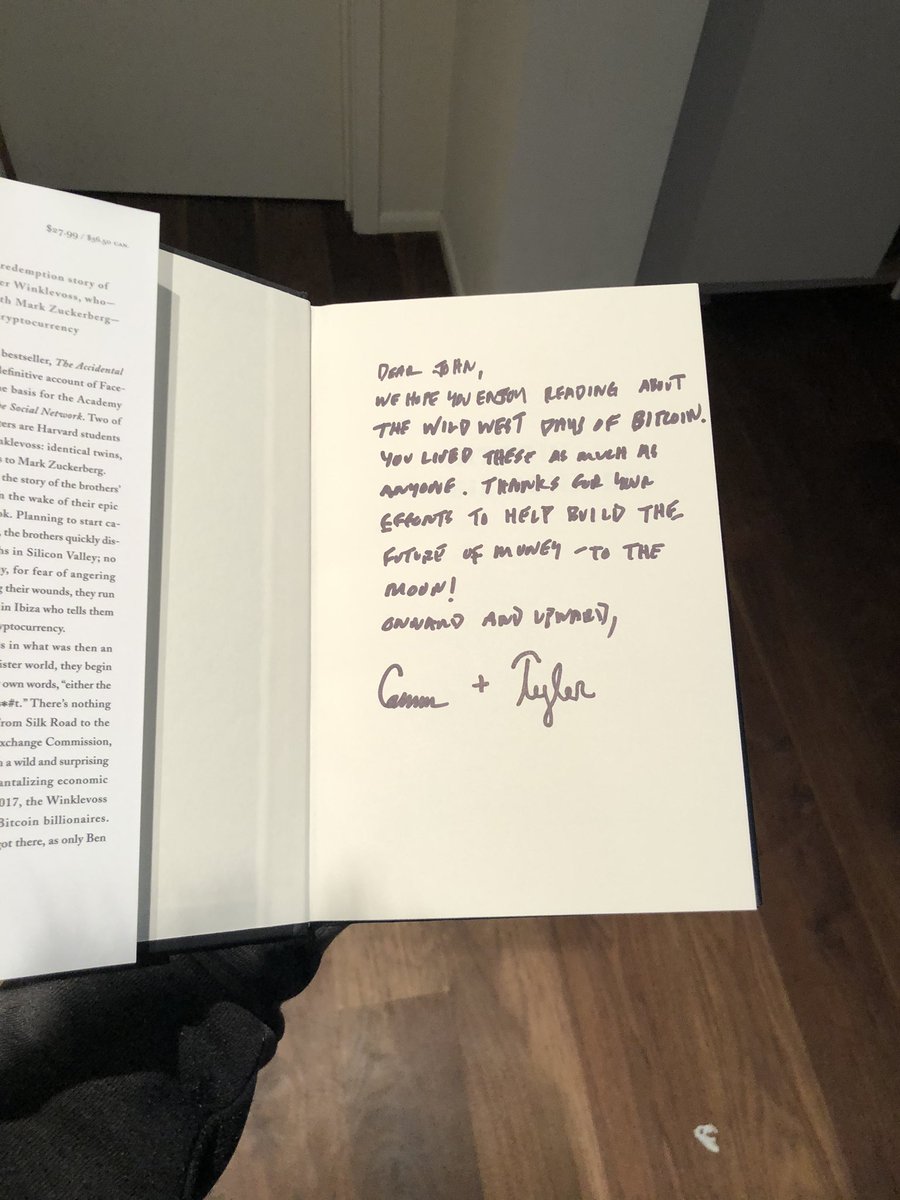 $27.99 / $36.50 CAN.
redemption story of
er Winklevoss, who—
th Mark Zuckerberg—
ryptocurrency
bestseller, The Accidental
definitive account of Face-
e basis for the Academy
e Social Network. Two of
ters are Harvard students
nklevoss: identical twins,
s to Mark Zuckerberg.
the story of the brothers'
n the wake of their epic
ok. Planning to start ca-
, the brothers quickly dis-
hs in Silicon Valley; no
y, for fear of angering
g their wounds, they run
in Ibiza who tells them
yptocurrency.
s in what was then an
ister world, they begin
own words, "either the
*#t." There's nothing
rom Silk Road to the
xchange Commission,
n a wild and surprising
antalizing economic
017, the Winklevoss
Bitcoin billionaires.
got there, as only Ben
DEAR JOHN,
WE HOPE YOU ENJOY READING ABOUT
THE WILD WEST DAYS OF BITCOIN.
YOU LIVED THESE AS MUCH AS
ANYONE. THANKS FOR YOUR
EFFORTS TO HELP BUILD THE
FUTURE OF MONEY - TO THE
MOON!
ONWARD AND UPWARD,
Cameron + Tyler